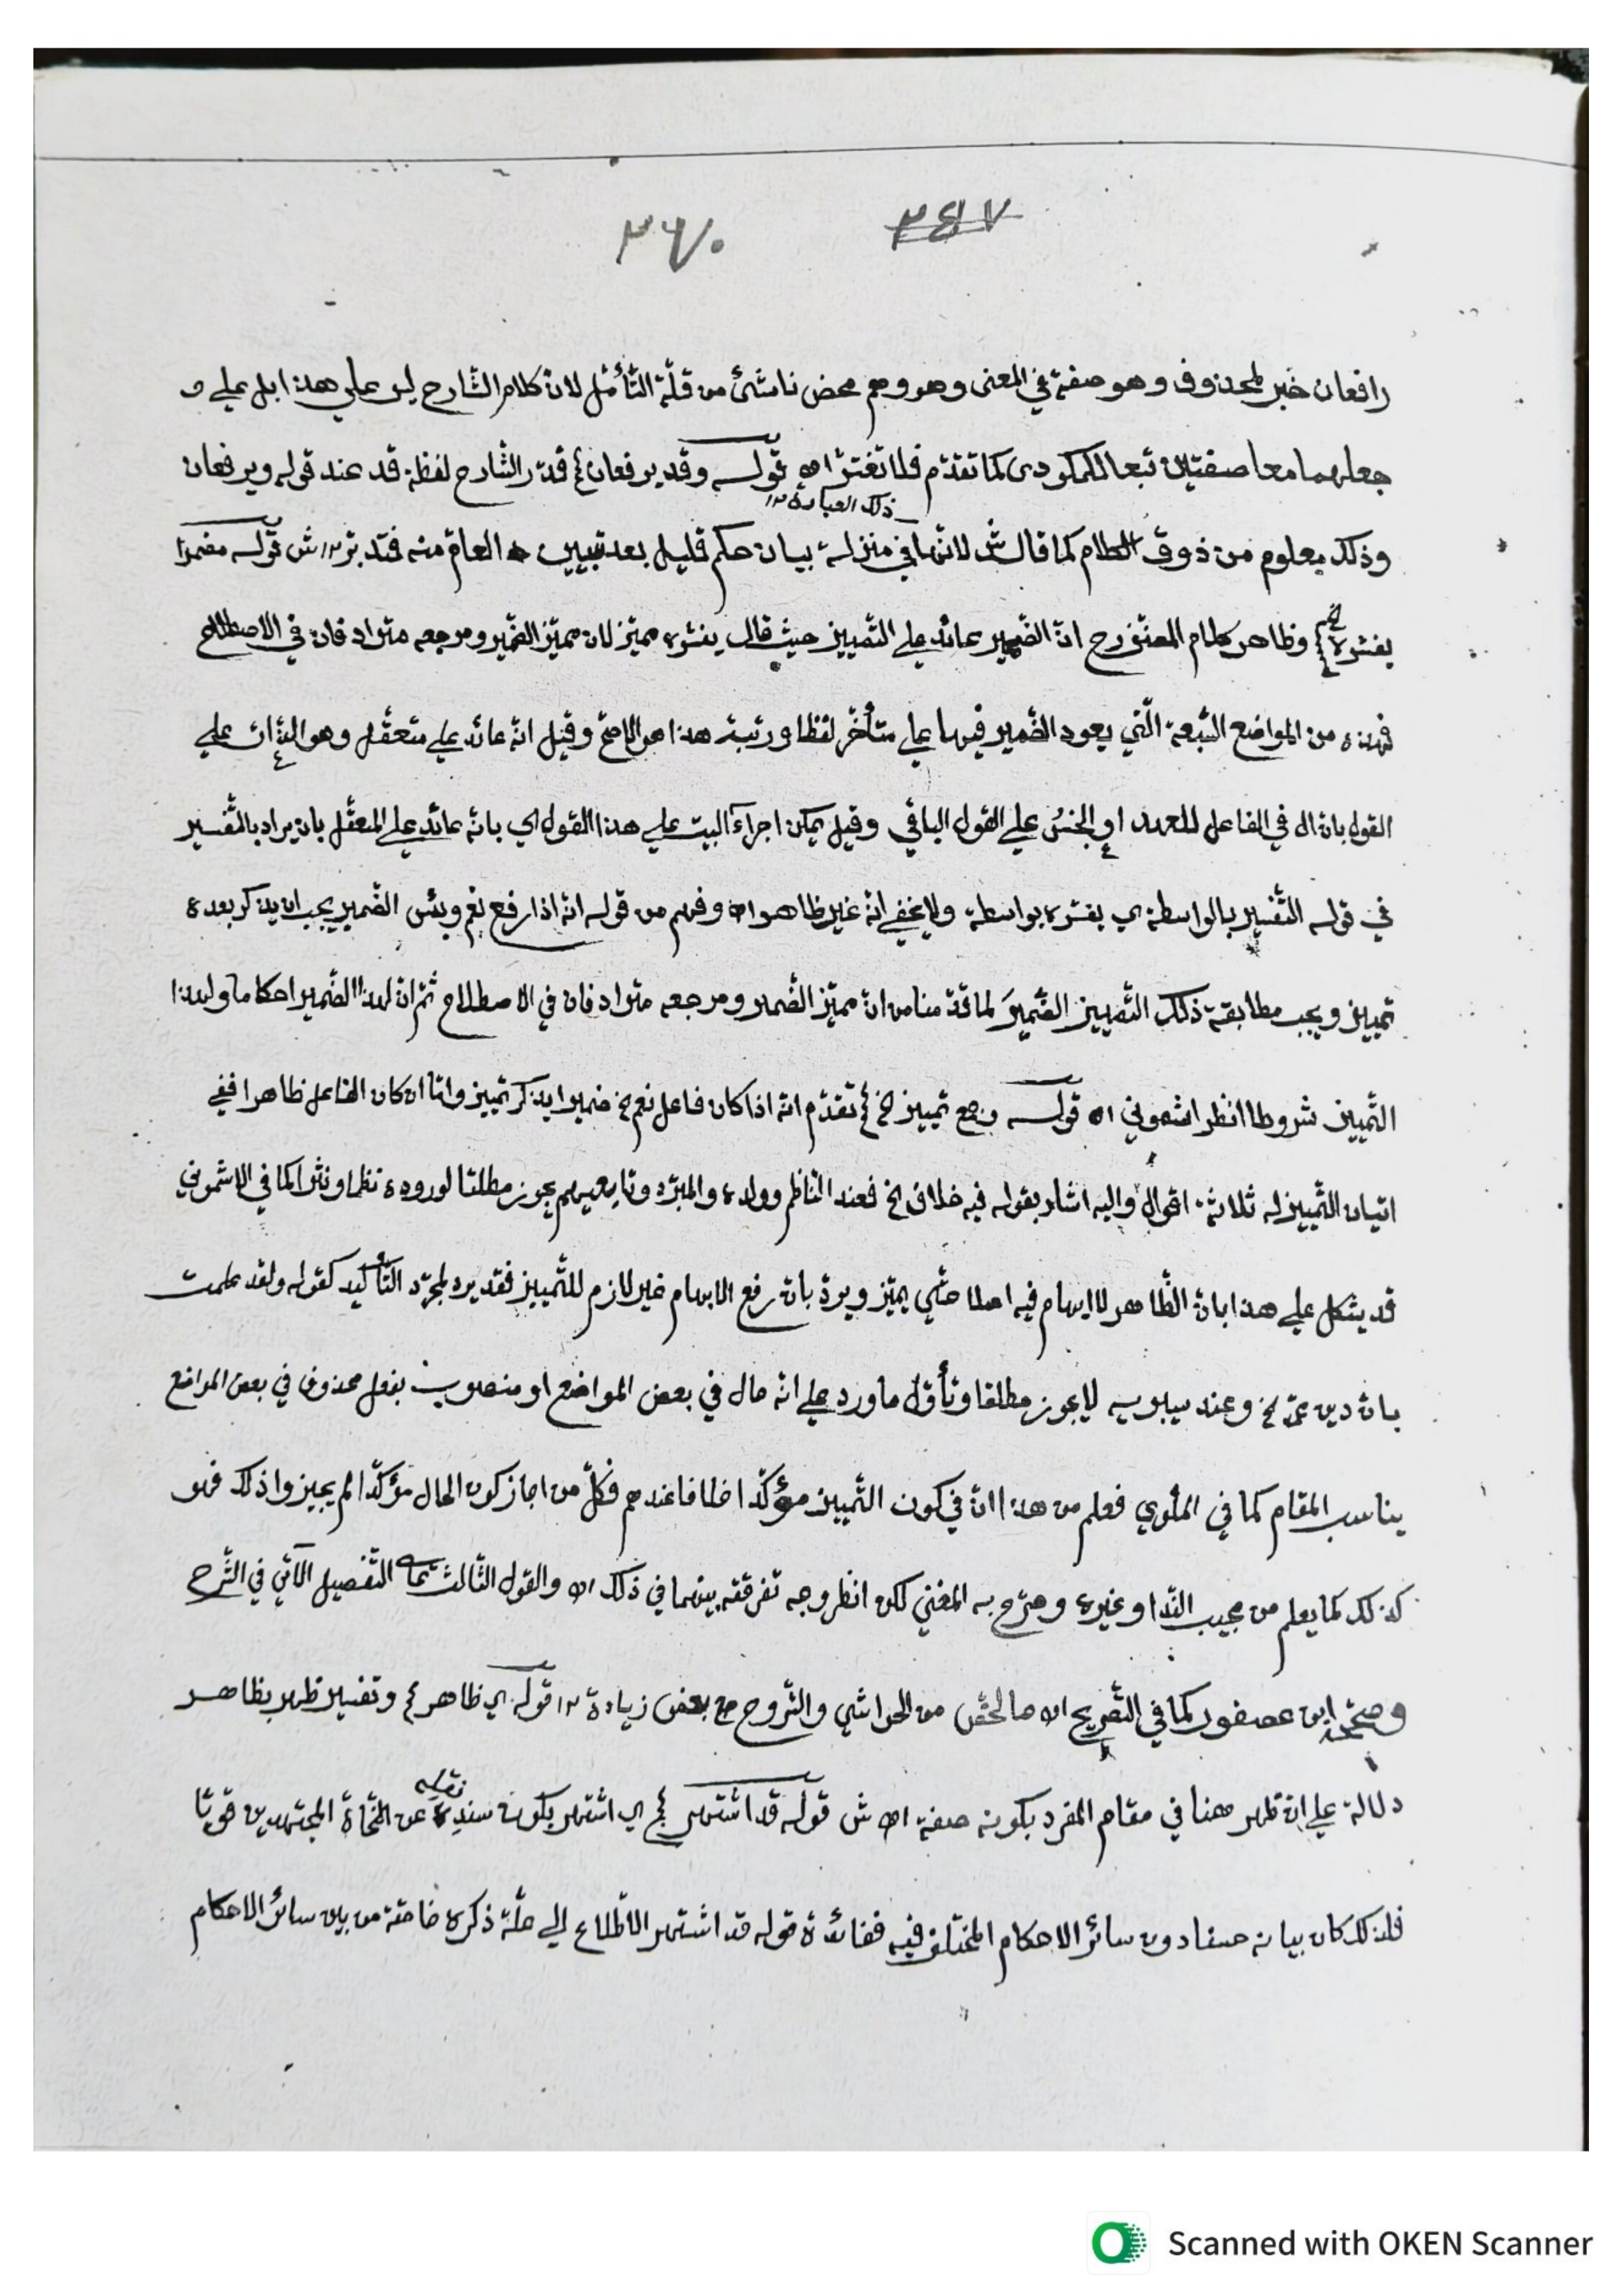 ٢٤٧ ٣٦٠
رافعان خبر لمحذوف وهو صفة في المعنى وهو وهم محض ناشئ من قلّة التّأمّل لان كلام الشّارح ليس علي هذا بل علي
جعلهما معا صفتين تبعا للمكودى كما تقدّم فلا تغترّ اه قوله وقد يرفعان ع قدّر الشّارح لفظة قد عند قوله ويرفعان
ذلك العبارة ١٢
وذلك معلوم من ذوق الكلام كما قال ش لانّها في منزلة بيان حكم قليل بعد تبيين العام منه فتدبّر ١٢ ش قوله مضمرا
يفسّره وظاهر كلام المصنّف رح انّ الضّمير عائد علي التّمييز حيث قال يفسّره مميّز لان مميّز الضّمير ومرجعه مترادفان في الاصطلاح
فهذه من المواضع السّبعة الّتي يعود الضّمير فيها علي متأخّر لفظا ورتبة هذا هو الاصحّ وقيل انّه عائد علي متعقّل وهو الذّات علي
القول بان ال في الفاعل للعهد او الجنس علي القول الباقي وقيل يمكن اجراء البيت علي هذا القول اي بانّه عائد علي المتعقّل بان يراد بالتّفسير
في قوله التّفسير بالواسطة اي يفسّره بواسطة ولا يخفي انّه غير ظاهر اه وفهم من قوله انّه اذا رفع نعم وبئس الضّمير يجب ان يذكر بعده
تمييز ويجب مطابقة ذلك التّمييز الضّميرَ لما قدّمنا من انّ مميّز الضّمير ومرجعه مترادفان في الاصطلاح ثمّ انّ لهذا الضّمير احكاما ولهذا
التّمييز شروطا انظر اشموني اه قوله وجمع تمييز الخ ع تقدّم انّه اذا كان فاعل نعم الخ ضميرا يذكر تمييز وامّا ان كان الفاعل ظاهرا ففي
اتيان التّمييز له ثلاثة اقوال واليه اشار بقوله فيه خلاف الخ فعند النّاظم وولده والمبرّد وتابعيهم يجوز مطلقا لوروده نظما ونثرا كما في الاشموني
قد يشكل علي هذا بانّ الظّاهر لا ابهام فيه اصلا حتّي يميّز ويردّ بانّ رفع الابهام غير لازم للتّمييز فقد يرد لمجرّد التّأكيد كقوله ولقد علمت
بانّ دين محمّد الخ وعند سيبويه لا يجوز مطلقا وتأوّل ما ورد علي انّه حال في بعض المواضع او منصوب بفعل محذوف في بعض المواضع
يناسب المقام كما في الملّوي فعلم من هذا انّ في كون التّمييز مؤكّدا خلافا عندهم فكلّ من اجاز كون الحال مؤكّدا لم يجيزوا ذلك فهو
كذلك كما يعلم من مجيب النّدا وغيره وصرّح به المغني لكن انظر وجه تفرقته بينهما في ذلك اه والقول الثّالث التّفصيل الآتي في الشّرح
وصحّحه ابن عصفور كما في التّصريح اه ما لخّص من الحواشي والشّروح مع بعض زيادة ١٢ قوله اي ظاهر ع وتفسير ظهر بظاهر
دلالة علي انّ ظهر ههنا في مقام المفرد بكونه صفة اه ش قوله قد اشتهر ع اي اشتهر بكون سنده نقله عن النّحاة المجتهدين قويّا
فلذلك كان بيانه حسنا دون سائر الاحكام المختلف فيه ففائدة قوله قد اشتهر الاطّلاع الي علّة ذكره خاصّة من بين سائر الاحكام
Scanned with OKEN Scanner